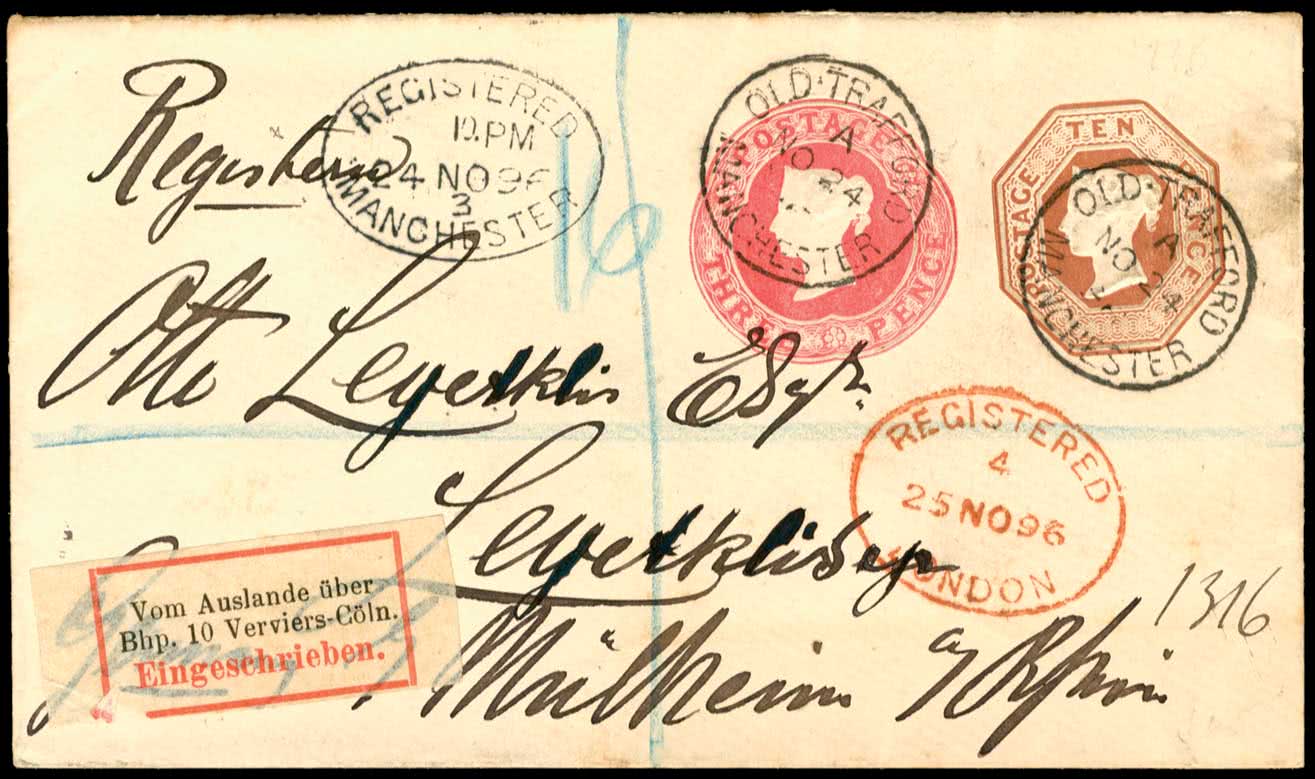 Registered
REGISTERED
10.PM
24 NO 96
3
MANCHESTER
16
OLD·TRAFFORD
A
NO 24
MANCHESTER
POSTAGE
THREE PENCE
TEN
POSTAGE
PENCE
OLD·TRAFFORD
A
NO 24
MANCHESTER
Otto Esqr.
REGISTERED
4
25 NO 96
LONDON
1316
Mülheim a/ Rhein
Vom Auslande über
Bhp. 10 Verviers-Cöln.
Eingeschrieben.